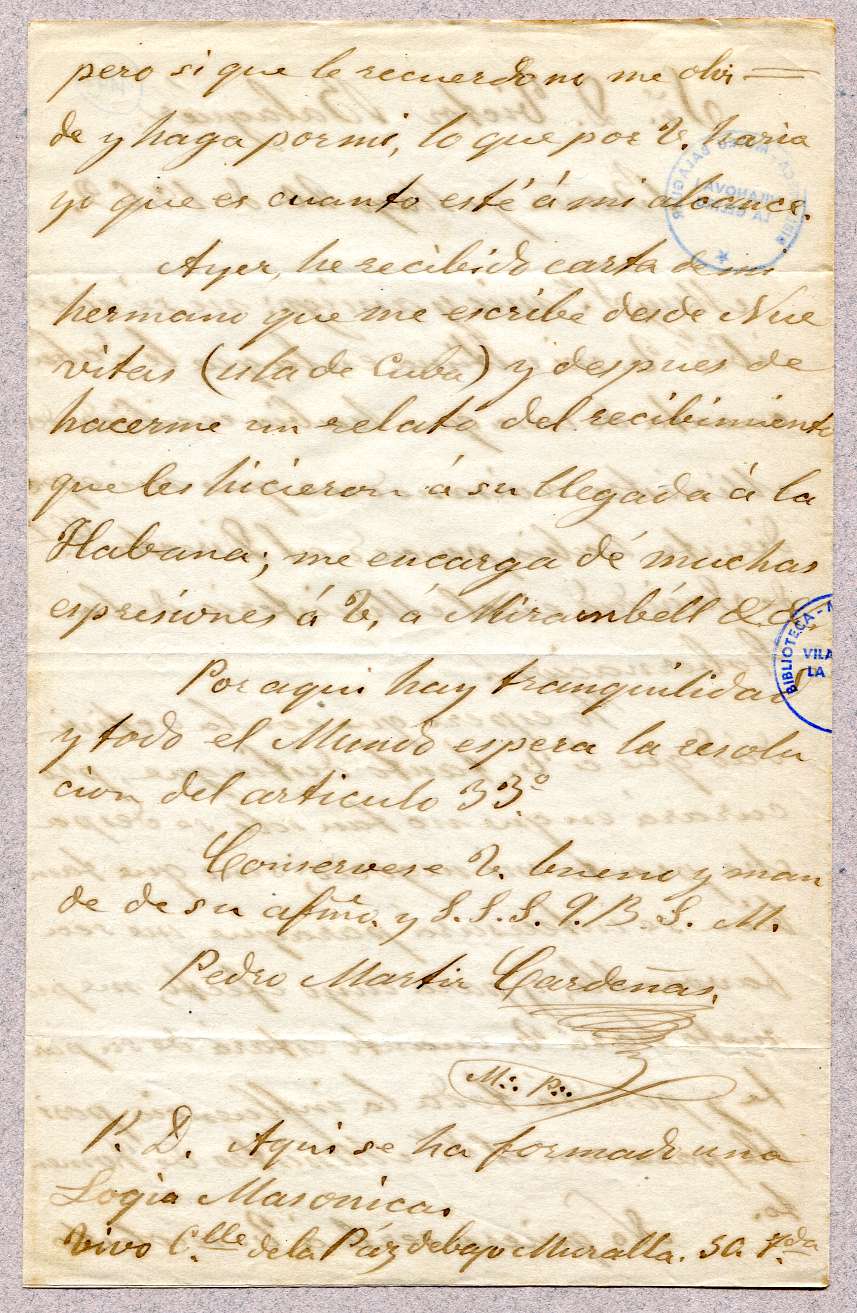 pero si que le recuerdo no me olvi=
de y haga por mi, lo que por V. haria
yo que es cuanto esté á mi alcance.
Ayer, he recibido carta de mi
hermano que me escribe desde Nue
vitas (isla de Cuba) y despues de
hacerme un relato del recibimiento
que les hicieron á su llegada á la
Habana; me encarga dé muchas
espresiones á V, á Mirambéll &c
BIBLIOTECA - M
VILA
LA
Por aqui hay tranquilidad
y todo el Mundo espera la resolu
cion del articulo 33º
Conservese V. bueno y man
de de su afmo. y S. S. S. Q. B. S. M.
Pedro Martir Cardeñas,
M∴ P∴
P. D. Aqui se ha formado una
Logia Masonicas
Vivo C.lle de la Páz debajo Muralla. 50.